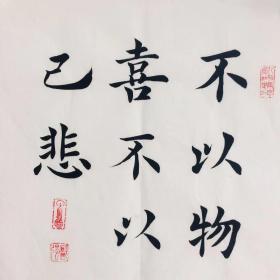 不以物
喜不以
己悲